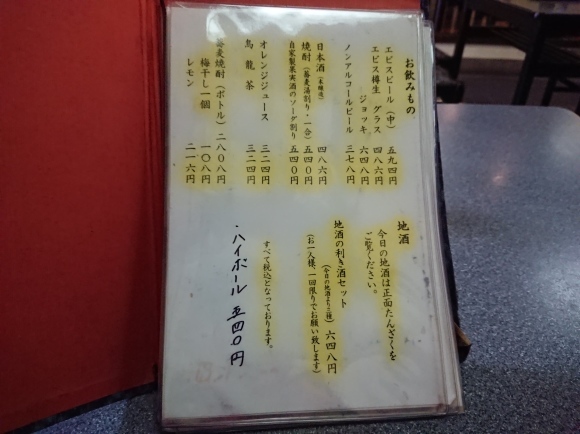 お飲みもの
エビスビール（中） 五九四円
エビス樽生 グラス 四八六円
ジョッキ 六四八円
ノンアルコールビール 三七八円
日本酒（本醸造） 四八六円
焼酎（蕎麦湯割り・一合） 五四〇円
自家製果実酒のソーダ割り 五四〇円
オレンジジュース 三二四円
烏龍茶 三二四円
蕎麦焼酎（ボトル） 二八〇八円
梅干し一個 一〇八円
レモン 二一六円
地酒
今日の地酒は正面たんざくを
ご覧ください。
地酒の利き酒セット
（今日の地酒より三種） 六四八円
（お一人様、一回限りでお願い致します）
すべて税込となっております。
・ハイボール 五四〇円